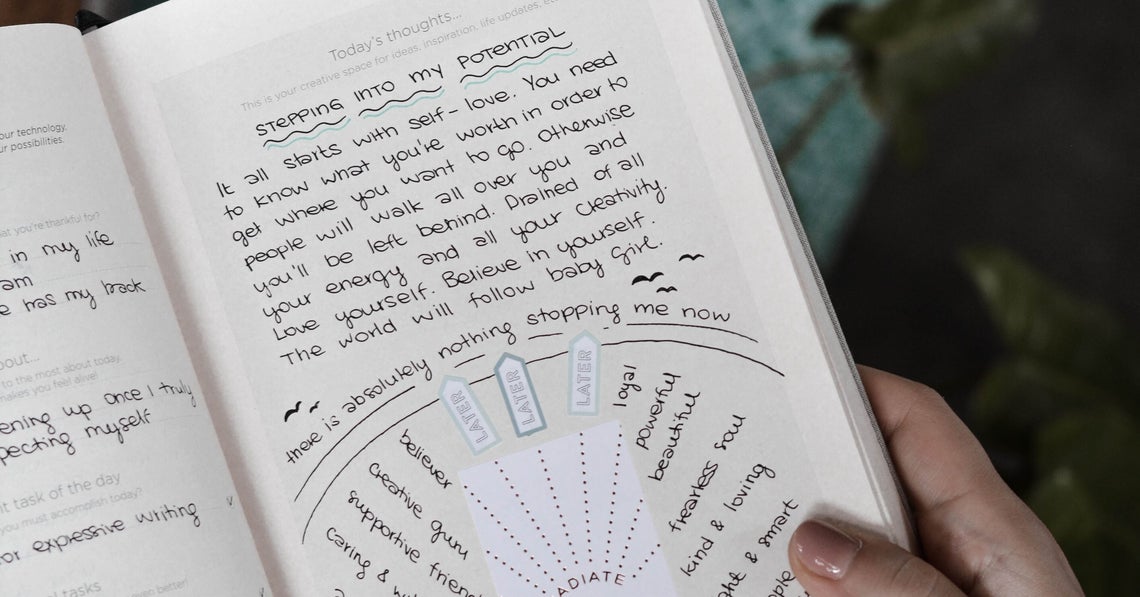 our technology.
ur possibilities.
at you're thankful for?
in my life
am
e has my back
bout...
to the most about today.
makes you feel alive!
ening up once I truly
pecting myself
t task of the day
you must accomplish today?
or expressive writing
l tasks
even better!
Today's thoughts...
This is your creative space for ideas, inspiration, life updates, etc
STEPPING INTO MY POTENTIAL
It all starts with self-love. You need
to know what you're worth in order to
get where you want to go. Otherwise
people will walk all over you and
you'll be left behind. Drained of all
your energy and all your creativity.
Love yourself. Believe in yourself.
The world will follow baby girl.
there is absolutely nothing stopping me now
LATER
LATER
LATER
believer
creative guru
supportive frien
caring &
loyal
powerful
beautiful
fearless soul
kind & loving
ht & smart
ADIATE